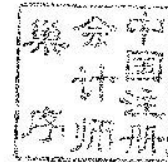 中国注册
会计师
巢序